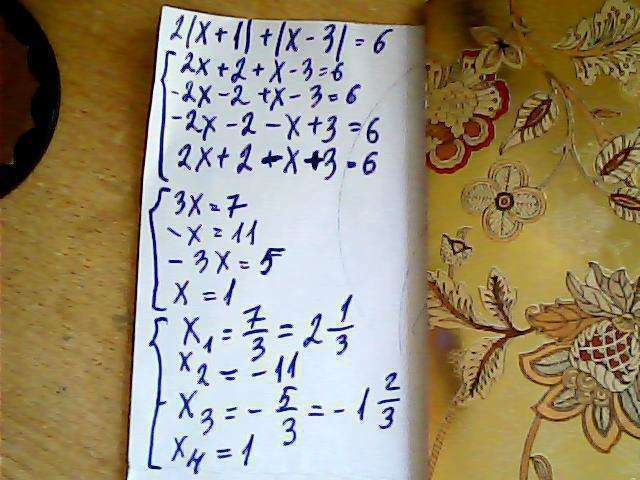 2|x+1|+|x-3|=6
2x+2+x-3=6
-2x-2+x-3=6
-2x-2-x+3=6
2x+2-x+3=6
3x=7
-x=11
-3x=5
x=1
x₁=7/3=2 1/3
x₂=-11
x₃=-5/3=-1 2/3
x₄=1